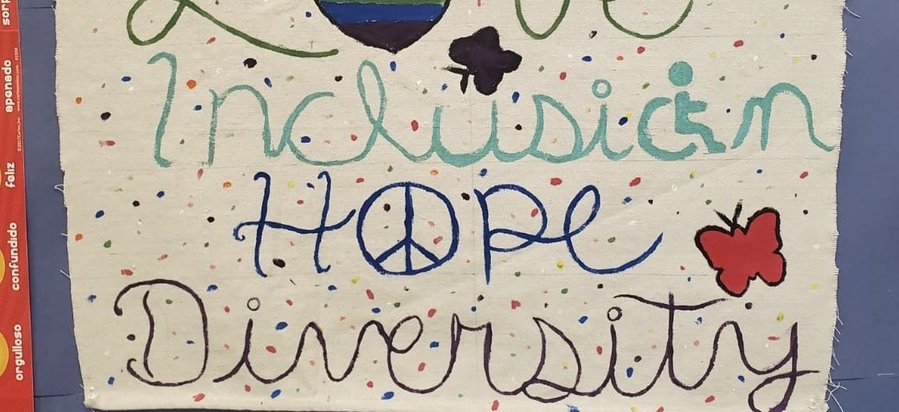 Love
Inclusion
Hope
Diversity
apenado
feliz
confundido
orgulloso